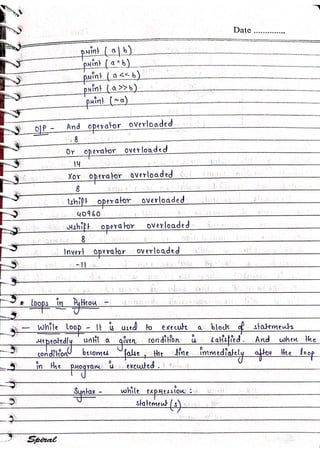 Date ..............
print ( a | b )
print ( a ^ b )
print ( a << b )
print ( a >> b )
print ( ~ a )
O/P - And operator overloaded
8
Or operator overloaded
14
Xor operator overloaded
8
lshift operator overloaded
40960
rshift operator overloaded
8
Invert operator overloaded
-11
• Loops in Python -
— While Loop - It is used to execute a block of statements
repeatedly until a given condition is satisfied. And when the
condition becomes false, the line immediately after the loop
in the program is executed.
Syntax - while expression :
statement (s)
Spiral